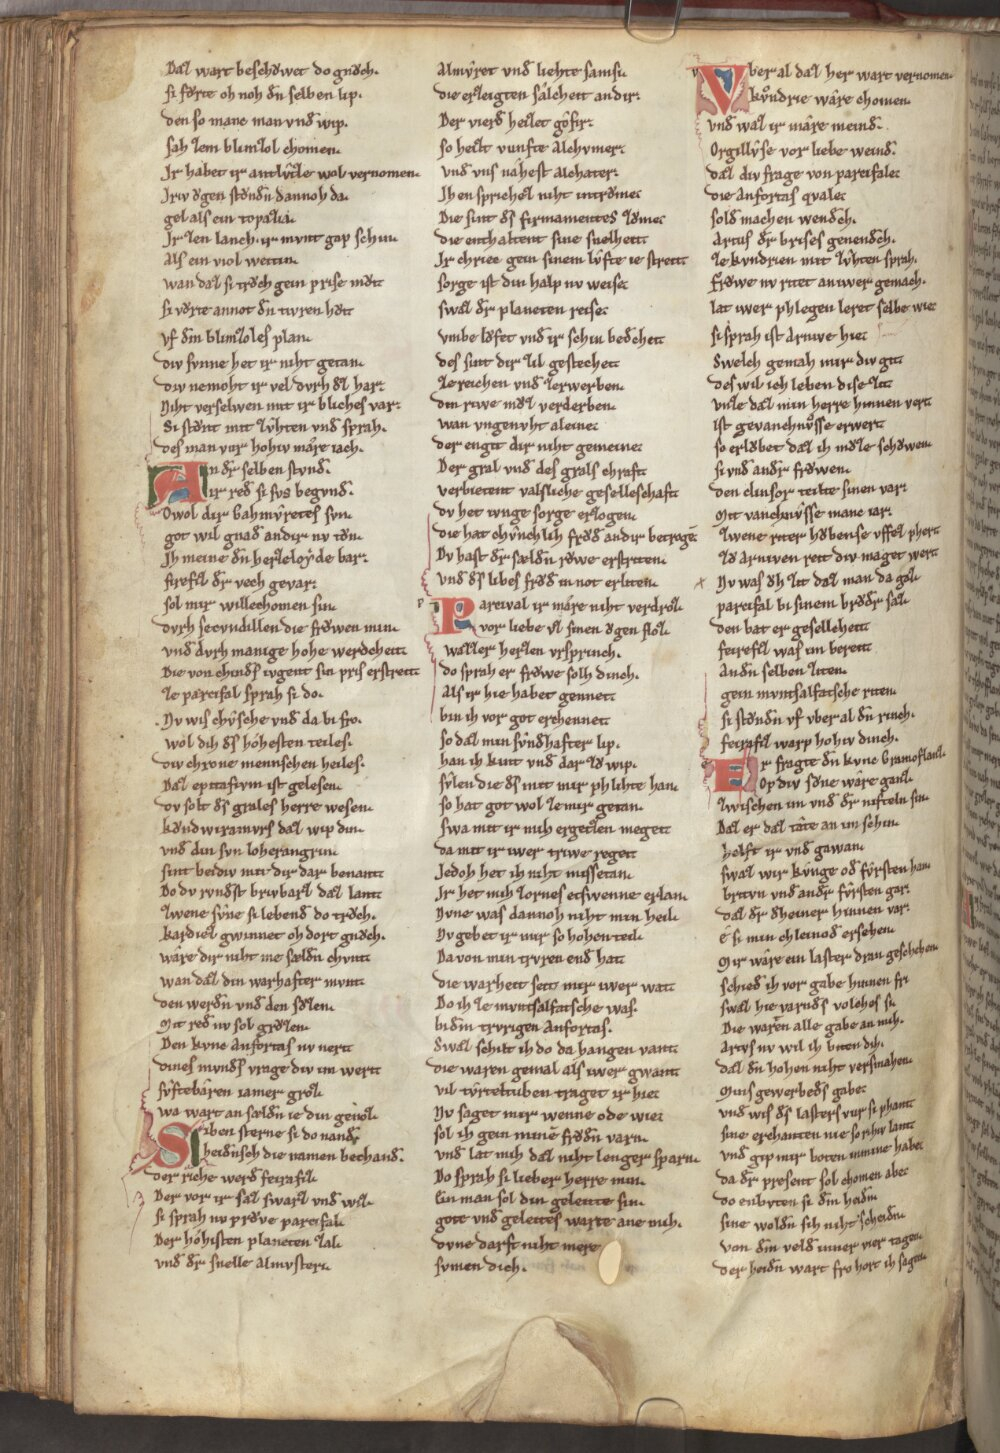 Daz wart beschŏwet do gnŏch.
si fŏrte oh noh dc̄ selben lip.
den so mane man vnd wip.
sah zem blimzol chomen.
Jr habet ir antlvͤtze wol vernomen.
Jriv ŏgen stŏndn̄ dannoh da.
gel als ein topazia.
Jr zen lanch. ir mvnt gap schin.
Als ein viol weitin.
wan daz si trŏch gein prise mŏt
si vŏrte annot dn̄ tivren hŏt
vf dim blimzoles plan.
div svnne het ir niht getan.
div nemoht ir vel dvrh dz har.
Niht verselwen mit ir bliches var.
Si stŏnt mit zvͤhten vnd sprah.
des man vur hohiv mære iach.
An dr̄ selben stvnd.
ir red si svs begvnd.
Owol dir Gahmvͤretes svn
got wil gnad an dir nv tŏn.
Jh meine dn̄ herzeloyde bar.
fireſiz dr̄ vech gevar.
sol mir willechomen sin
dvrh secvndillen die frŏwen min.
vnd dvrh manige hohe werdcheit
Die von chinds ivgent sin pris erstreit
ze parcifal sprah si do.
Nv wis chvͤsche vnd da bi fro.
wol dih ds̄ hohesten teiles.
div chrone mennschen heiles.
Daz epitafivm ist gelesen.
dv solt ds̄ grales herre wesen.
kvndwiramvrs daz wip din.
vnd din svn loherangrin
sint beidiv mit dir dar benant
Do dv rvmdst brvbarz daz lant
zwene svͤne si lebend do trŏch.
kardiez gwinnet oh dort gnŏch.
wære dir niht me sældn̄ chvnt
wan daz din warhafter mvnt
den werdn̄ vnd den sŏzen.
Mit red nv sol grŏzen.
Den kvne Anfortas nv nert
dines mvnds vrage div im wert
svͤftebæren iamer groz
wa wart an sældn̄ ie din genoz
Siben sterne si do nandc̄
heidnsch die namen bechand.
der riche werd feirafiz.
Der vor ir saz swarz vnd wiz.
si sprah nv prŏve parcifal.
Der hohisten planeten zal.
vnd dr̄ snelle Almvstern.
Almvret vnd liehte samsi.
die erzeigten sælcheit an dir.
Der vierd heizet gofir.
so heizt vunfte Alchymer.
vnd vns næhest Alchater.
Jh en sprichez niht in trŏme.
Die sint ds̄ firmamentes zŏme.
die enthaltent sine snelheit
Jr chriec gein sinem lvfte ie streit
sorge ist din halp nv weise.
swaz dr̄ planeten reise.
vmbe lŏfet vnd ir schin bedechet
des sint dir zil gestechet
ze reichen vnd zerwerben.
din riwe mŏz verderben.
wan vngenvht aleine.
der engit dir niht gemeine.
Der gral vnd des grals chraft
verbietent valsliche geselleschaft
dv het ivnge sorge erzogen
die hat chvͤnchlih frŏd an dir betrogē
Dv hast dr̄ sældn̄ rŏwe erstriten
vnd ds̄ libes frŏd in not erliten.
Parcival ir mære niht verdroz
vor liebe vz sinen ŏgen floz
wazzer herzen vrsprinch.
do sprah er frŏwe solh dinch.
Als ir hie habet gennet
bin ih vor got erchennet
so daz min svndhafter lip.
han ih kint vnd dar zŏ wip.
svͤlen die ds̄ mit mir phlihte han
so hat got wol ze mir getan.
swa mit ir mih ergetzen meget
da mit ir iwer triwe reget
Jedoh het ih niht missetan.
Jr het mih zornes etswenne erlan
Nvne was dannoh niht min heil.
Nv gebet ir mir so hohen teil
Da von min trvren end hat
die warheit seit mir iwer wat
Do ih ze mvntsalfatsche was.
bi dim trvrigen Anfortas.
Swaz schilt ih do da hangen vant
die waren gemal als iwer gwant
vil tvrteltuben traget ir hie
Nv saget mir wenne ode wie.
sol ih gein minē frŏdn̄ varn.
vnd lat mih daz niht lenger sparn
Do sprah si lieber herre min.
Ein man sol din geleitte sin.
gote vnd geleites warte ane mih.
dvne darft niht mere
svmen dich.
Vber al daz her wart vernomen
kvͦndrie wære chomen.
vnd waz ir mære meind.
Orgillvͤse vor liebe weind.
daz div frage von parcifale.
die anfortas qvale.
sold machen wendch.
Artus dr̄ brises genendch.
ze kvndrien mit zvhten sprah.
frŏwe nv ritet an iwer gemach.
lat iwer phlegen leret selbe wie
si sprah ist Arnive hie
Swelch gemah mir div git
des wil ich leben dise zit
vnze daz min herre hinnen vert
ist gevanchnvͦsse erwert
so erlŏbet daz ih mŏze schŏwen
si vnd andr̄ frŏwen.
den clinsor teilte sinen var.
Mit vanchnvͤsse manc iar.
zwene riter hŏbense vffez phert
zŏ Arniven reit div maget wert
Nv was ŏh zit daz man da gaz
parcifal bi sinem brŏdr̄ saz
den bat er gesellcheit
feirefiz was im bereit
An dn̄ selben ziten.
gein mvntsalfatsche riten.
si stŏndn̄ vf vber al dn̄ rinch.
feirafiz warp hohiv dinch.
Er fragte dn̄ kvnc Gramoflanz
Op div sŏne wære ganz
zwischen im vnd dr̄ nifteln sin
Daz er daz tæte an im schin
helft ir vnd gawan
swaz wir kvnge od fvͤrsten han
britvn vnd andr̄ fvͤrsten gar.
daz dr̄ dheiner hinnen var.
ê si min chleinod ersehen.
Mir wære ein laster dran geschehen
schied ih vor gabe hinnen fri
swaz hie varnds̄ volches si
Die waren alle gabe an mih.
Artvs nv wil ih biten dih.
daz dn̄ hohen niht versmahen
Mins gewerbeds gabe.
vnd wis ds̄ lasters vur si phant
sine erchanten nie so riher lant
vnd gip mir boten inmine habe
da dr̄ present sol chomen abe
do enbvten si dim heidn̄
sine woldn̄ sih niht scheidn̄
von dim veld inner vier tagen.
der heidn̄ wart fro hort ih sagen